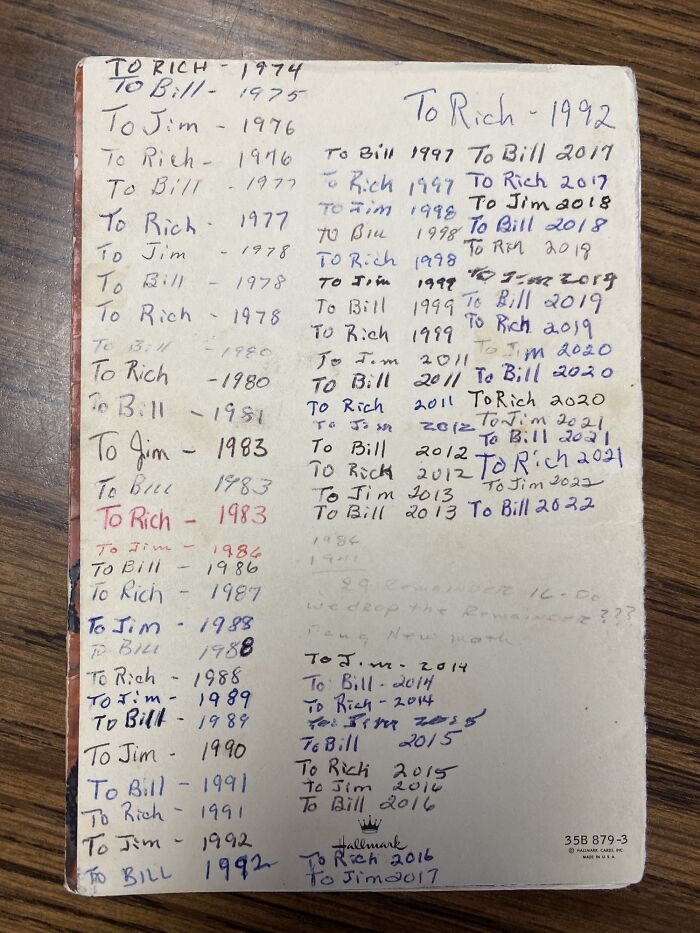 To RICH - 1974
To Bill - 1975
To Jim - 1976
To Rich - 1976
To Bill - 1977
To Rich - 1977
To Jim - 1978
To Bill - 1978
To Rich - 1978
To Bill - 1980
To Rich - 1980
To Bill - 1981
To Jim - 1983
To Bill 1983
To Rich - 1983
To Jim - 1986
To Bill - 1986
To Rich - 1987
To Jim - 1988
To Bill 1988
To Rich - 1988
To Jim - 1989
To Bill - 1989
To Jim - 1990
To Bill - 1991
To Rich - 1991
To Jim - 1992
To BILL 1992
To Rich - 1992
To Bill 1997
To Rich 1997
To Jim 1998
To Bill 1998
To Rich 1998
To Jim 1999
To Bill 1999
To Rich 1999
To Jim 2011
To Bill 2011
To Rich 2011
To Jim 2012
To Bill 2012
To Rich 2012
To Jim 2013
To Bill 2013
1984
29 Remainder 16 - Do
we drop the Remainder ???
New math
To Jim - 2014
To Bill - 2014
To Rich - 2014
To Jim 2015
To Bill 2015
To Rich 2015
To Jim 2016
To Bill 2016
Hallmark
To Rich 2016
To Jim 2017
To Bill 2017
To Rich 2017
To Jim 2018
To Bill 2018
To Rich 2018
To Jim 2019
To Bill 2019
To Rich 2019
To Jim 2020
To Bill 2020
To Rich 2020
To Jim 2021
To Bill 2021
To Rich 2021
To Jim 2022
To Bill 2022
35B 879-3
© HALLMARK CARDS, INC.
MADE IN U.S.A.